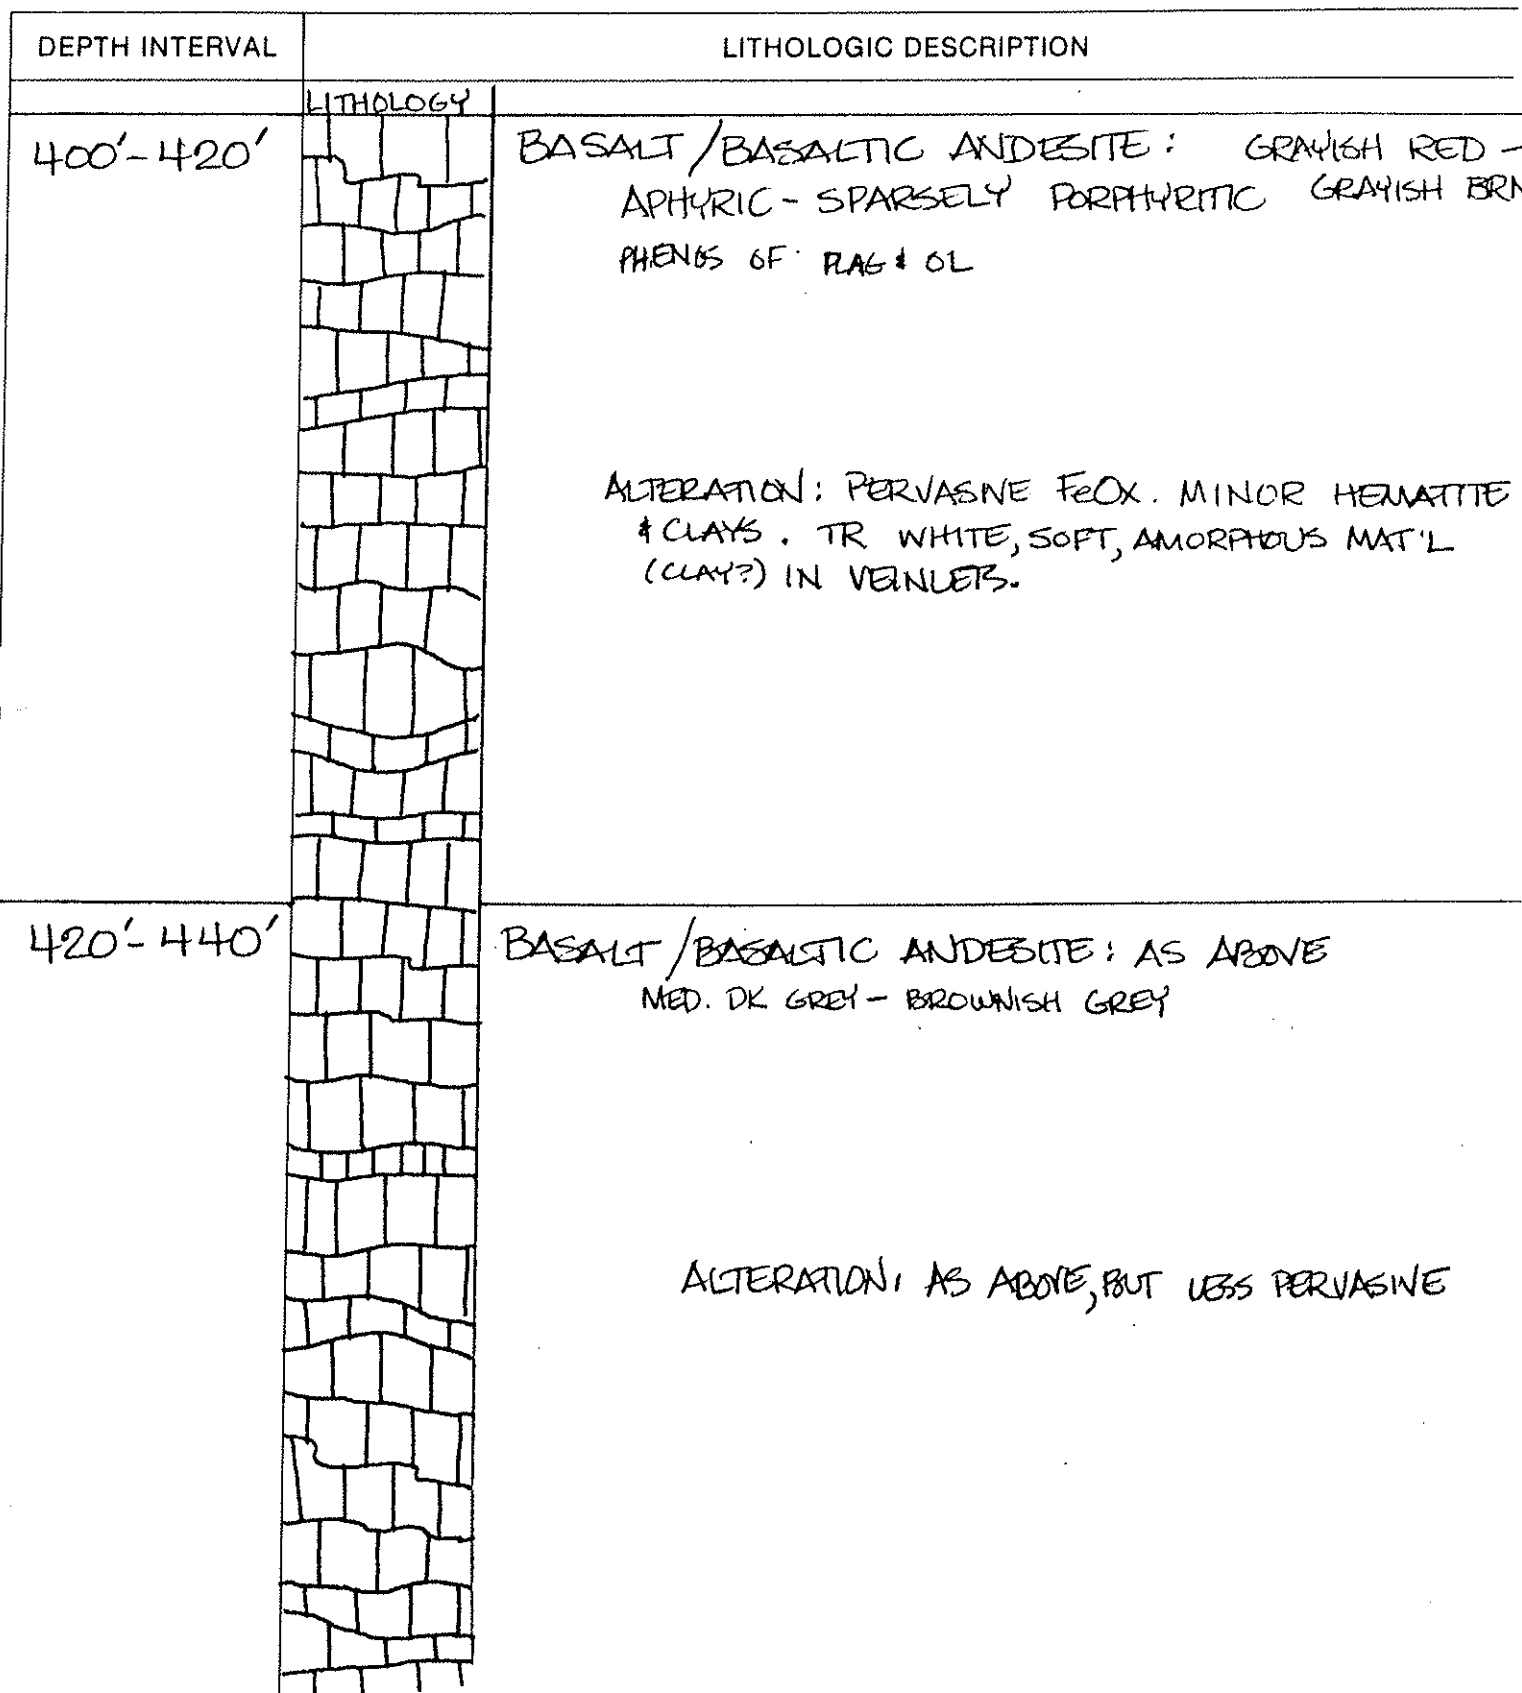 DEPTH INTERVAL
LITHOLOGIC DESCRIPTION
LITHOLOGY
400'-420'
BASALT/BASALTIC ANDESITE: GRAYISH RED -
APHYRIC - SPARSELY PORPHYRITIC GRAYISH BRN
PHENOS OF PLAG & OL
ALTERATION: PERVASIVE FeOx. MINOR HEMATITE
& CLAYS. TR WHITE, SOFT, AMORPHOUS MAT'L
(CLAY?) IN VEINLETS.
420'-440'
BASALT/BASALTIC ANDESITE: AS ABOVE
MED. DK GREY - BROWNISH GREY
ALTERATION: AS ABOVE, BUT LESS PERVASIVE